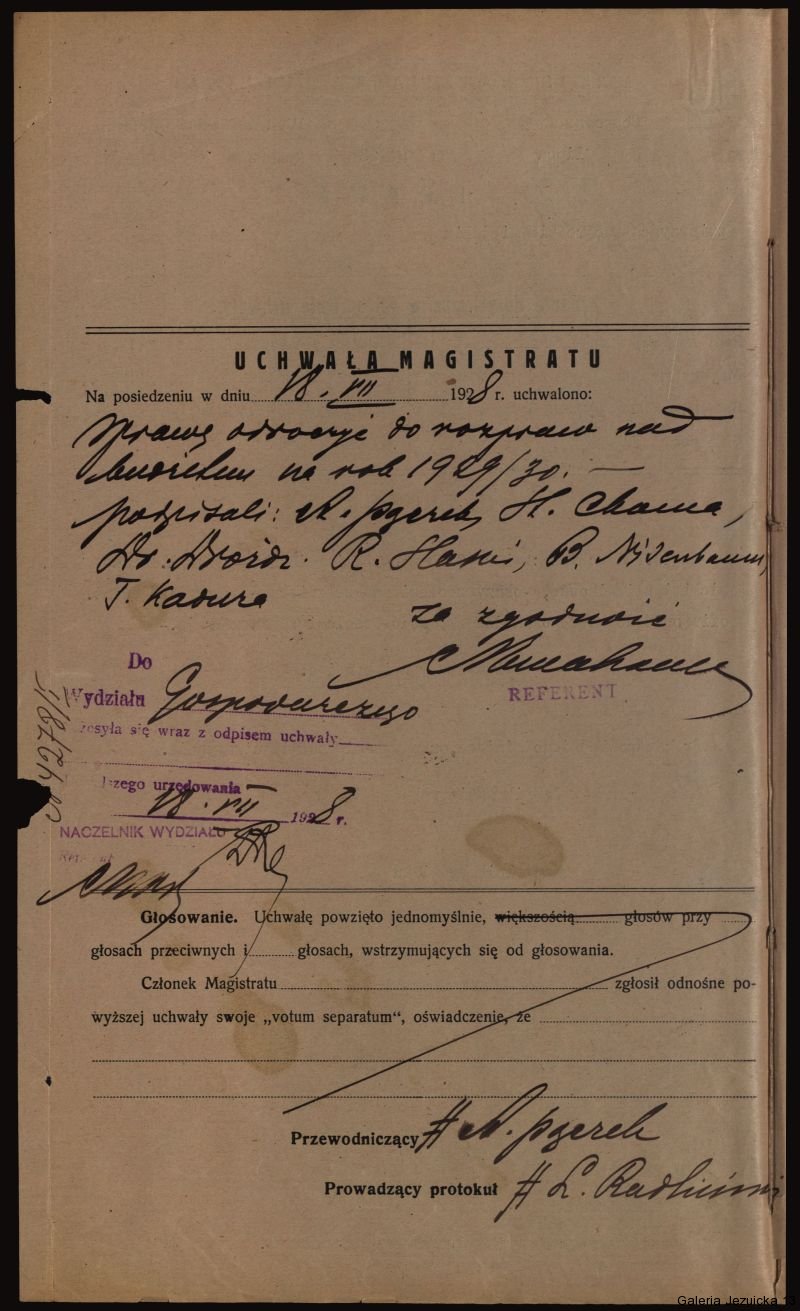 UCHWAŁA MAGISTRATU
Na posiedzeniu w dniu 18. VII 1928 r. uchwalono:
sprawę odroczyć do rozpraw nad
budżetem na rok 1929/30. —
podpisali: A. Pączek, H.
Dr. R. B. Nisenbaum,
T. Kadura
za zgodność
REFERENT
Do
Wydziału Gospodarczego
syła się wraz z odpisem uchwały
szego urzędowania
18. VII 1928 r.
NACZELNIK WYDZIAŁU
Głosowanie. Uchwałę powzięto jednomyślnie, większością głosów przy
głosach przeciwnych i głosach, wstrzymujących się od głosowania.
Członek Magistratu zgłosił odnośne po-
wyższej uchwały swoje „votum separatum“, oświadczenie, że
Przewodniczący A. Pączek
Prowadzący protokuł L.
Galeria Jezuicka 13